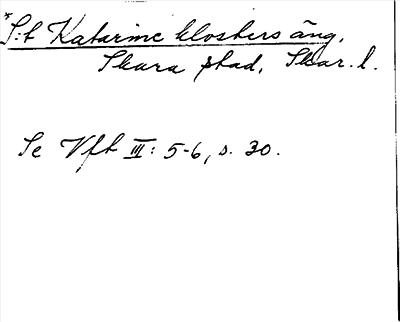 *S:t Katarine klosters äng,
Skara stad, Skar. l.
Se Vft III: 5-6, s. 30.